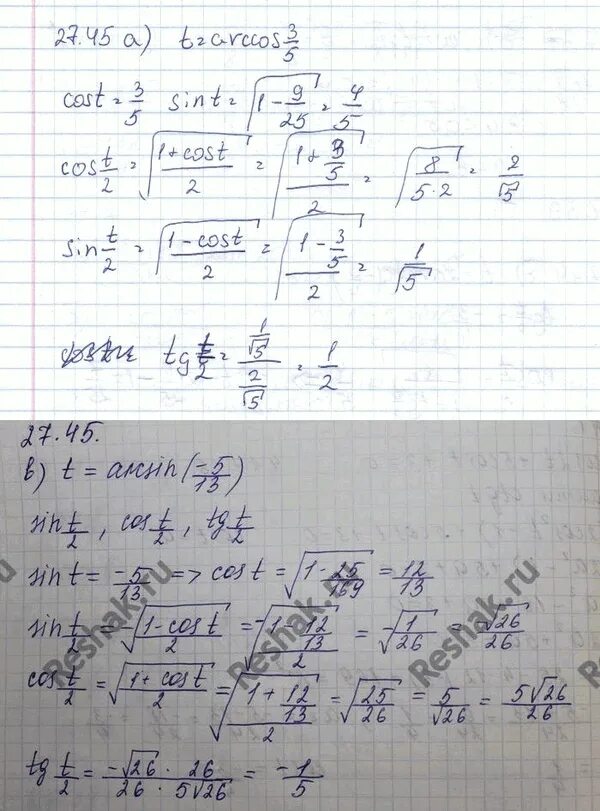 27.45 а) t=arccos 3/5
cost = 3/5 sint = √(1 - 9/25) = 4/5
cos t/2 = √((1+cost)/2) = √((1+3/5)/2) = √(8/(5·2)) = 2/√5
sin t/2 = √((1-cost)/2) = √((1-3/5)/2) = 1/√5
tg t/2 = (1/√5)/(2/√5) = 1/2
27.45.
в) t = arcsin(-5/13)
sin t/2, cos t/2, tg t/2
sin t = -5/13 => cos t = √(1 - 25/169) = 12/13
sin t/2 = √((1-cos t)/2) = -√((1-12/13)/2) = -√(1/26) = -√26/26
cos t/2 = √((1+cos t)/2) = √((1+12/13)/2) = √(25/26) = 5/√26 = 5√26/26
tg t/2 = (-√26 · 26)/(26 · 5√26) = -1/5
Reshak.ru
Reshak.ru
Reshak.ru